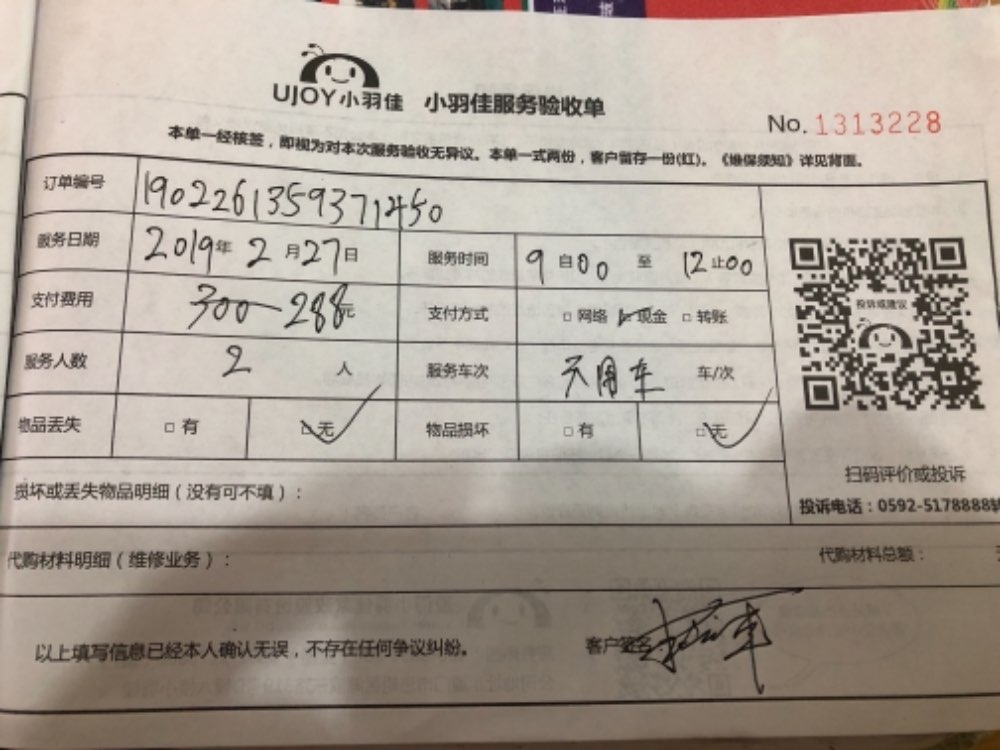 UJOY小羽佳 小羽佳服务验收单
No. 1313228
本单一经核签，即视为对本次服务验收无异议。本单一式两份，客户留存一份(红)。《维保须知》详见背面。
订单编号 1902261359371450
服务日期 2019年2月27日 服务时间 9自00至12止00
支付费用 300-288元 支付方式 □网络 ☑现金 □转账
服务人数 2人 服务车次 无用车 车/次
物品丢失 □有 ☑无 物品损坏 □有 ☑无
投诉或建议
扫码评价或投诉
投诉电话：0592-5178888转
损坏或丢失物品明细（没有可不填）：
代购材料明细（维修业务）： 代购材料总额：
以上填写信息已经本人确认无误，不存在任何争议纠纷。 客户签名